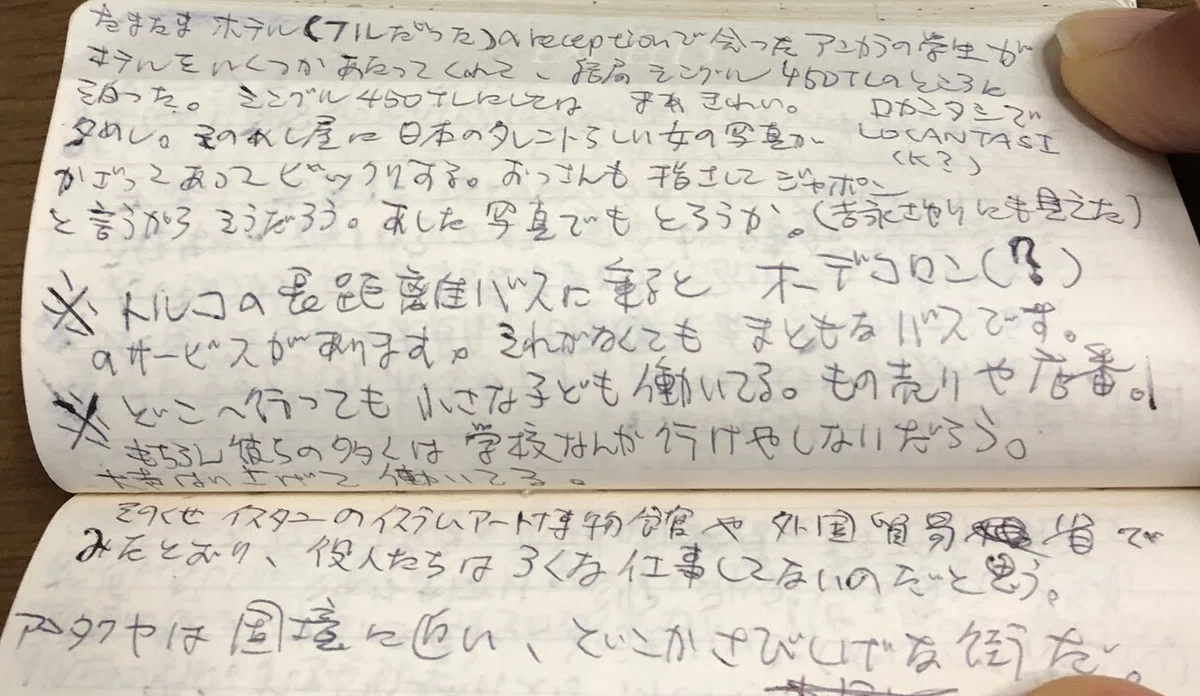 たまたまホテル(フルだった)のreceptionで会ったアンカラの学生が
ホテルをいくつかあたってくれて、結局シングル450TLのところに
泊った。シングル450TLにしては まあきれい。 ロカンタシで
夕めし。そのめし屋に日本のタレントらしい女の写真が LOCANTASI
(K?)
かざってあってビックリする。おっさんも指さしてジャポン
と言うからそうだろう。あした写真でもとろうか。(吉永さゆりにも見えた)
※トルコの長距離バスに乗ると オーデコロン(?)
のサービスがあります。それがなくても まともなバスです。
※どこへ行っても小さな子ども働いてる。もの売りや店番。
もちろん彼らの多くは学校なんか行けやしないだろう。
大声はり上げて働いてる。
そのくせイスタンのイスラムアート博物館や外国貿易省で
みたとおり、役人たちはろくな仕事してないのだと思う。
アンタクヤは国境に近い、どこかさびしげな街だ。